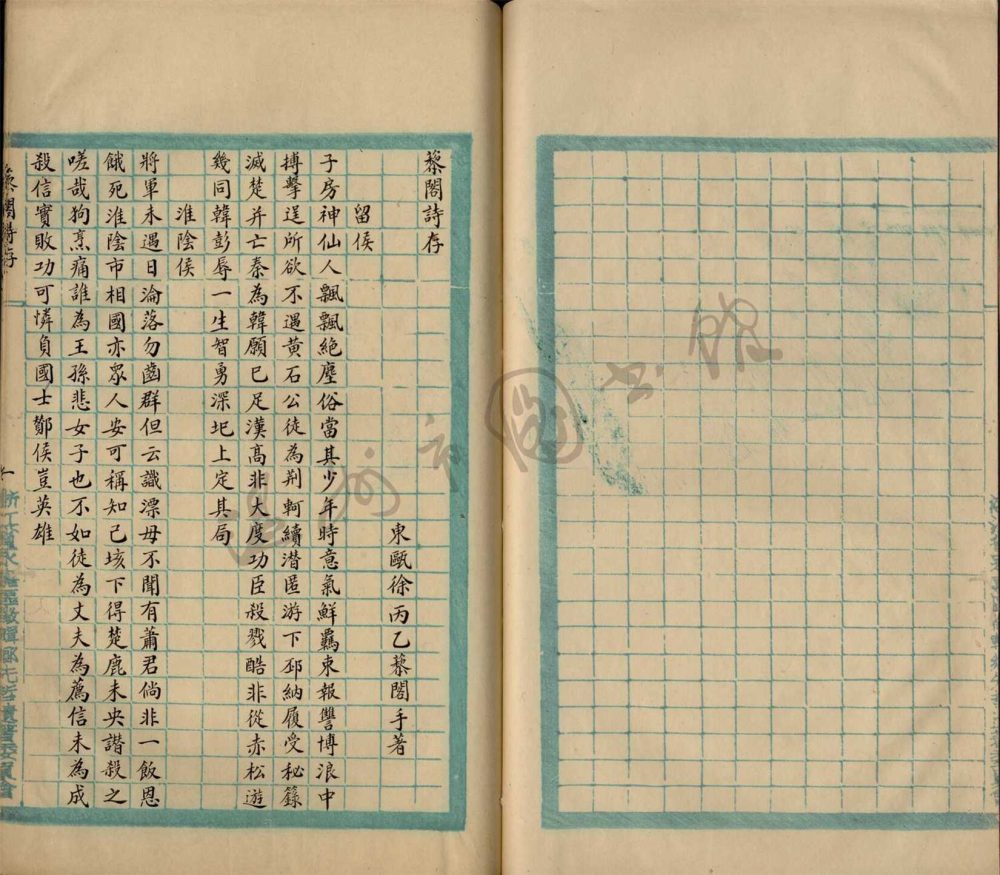 藜閣詩存
東甌徐丙乙藜閣手著
留侯
子房神仙人飄飄絶塵俗當其少年時意氣鮮羈束報讐博浪中
搏擊逞所欲不遇黃石公徒為荆軻續潛匿游下邳納履受秘籙
滅楚并亡秦為韓願已足漢高非大度功臣殺戮酷非從赤松遊
幾同韓彭辱一生智勇深圯上定其局
淮陰侯
將軍未遇日淪落勿齒群但云識漂母不聞有蕭君倘非一飯恩
餓死淮陰市相國亦眾人安可稱知己垓下得楚鹿未央譖殺之
嗟哉狗烹痛誰為王孫悲女子也不如徒為丈夫為薦信未為成
殺信實敗功可憐負國士鄼侯豈英雄
藜閣詩存
一